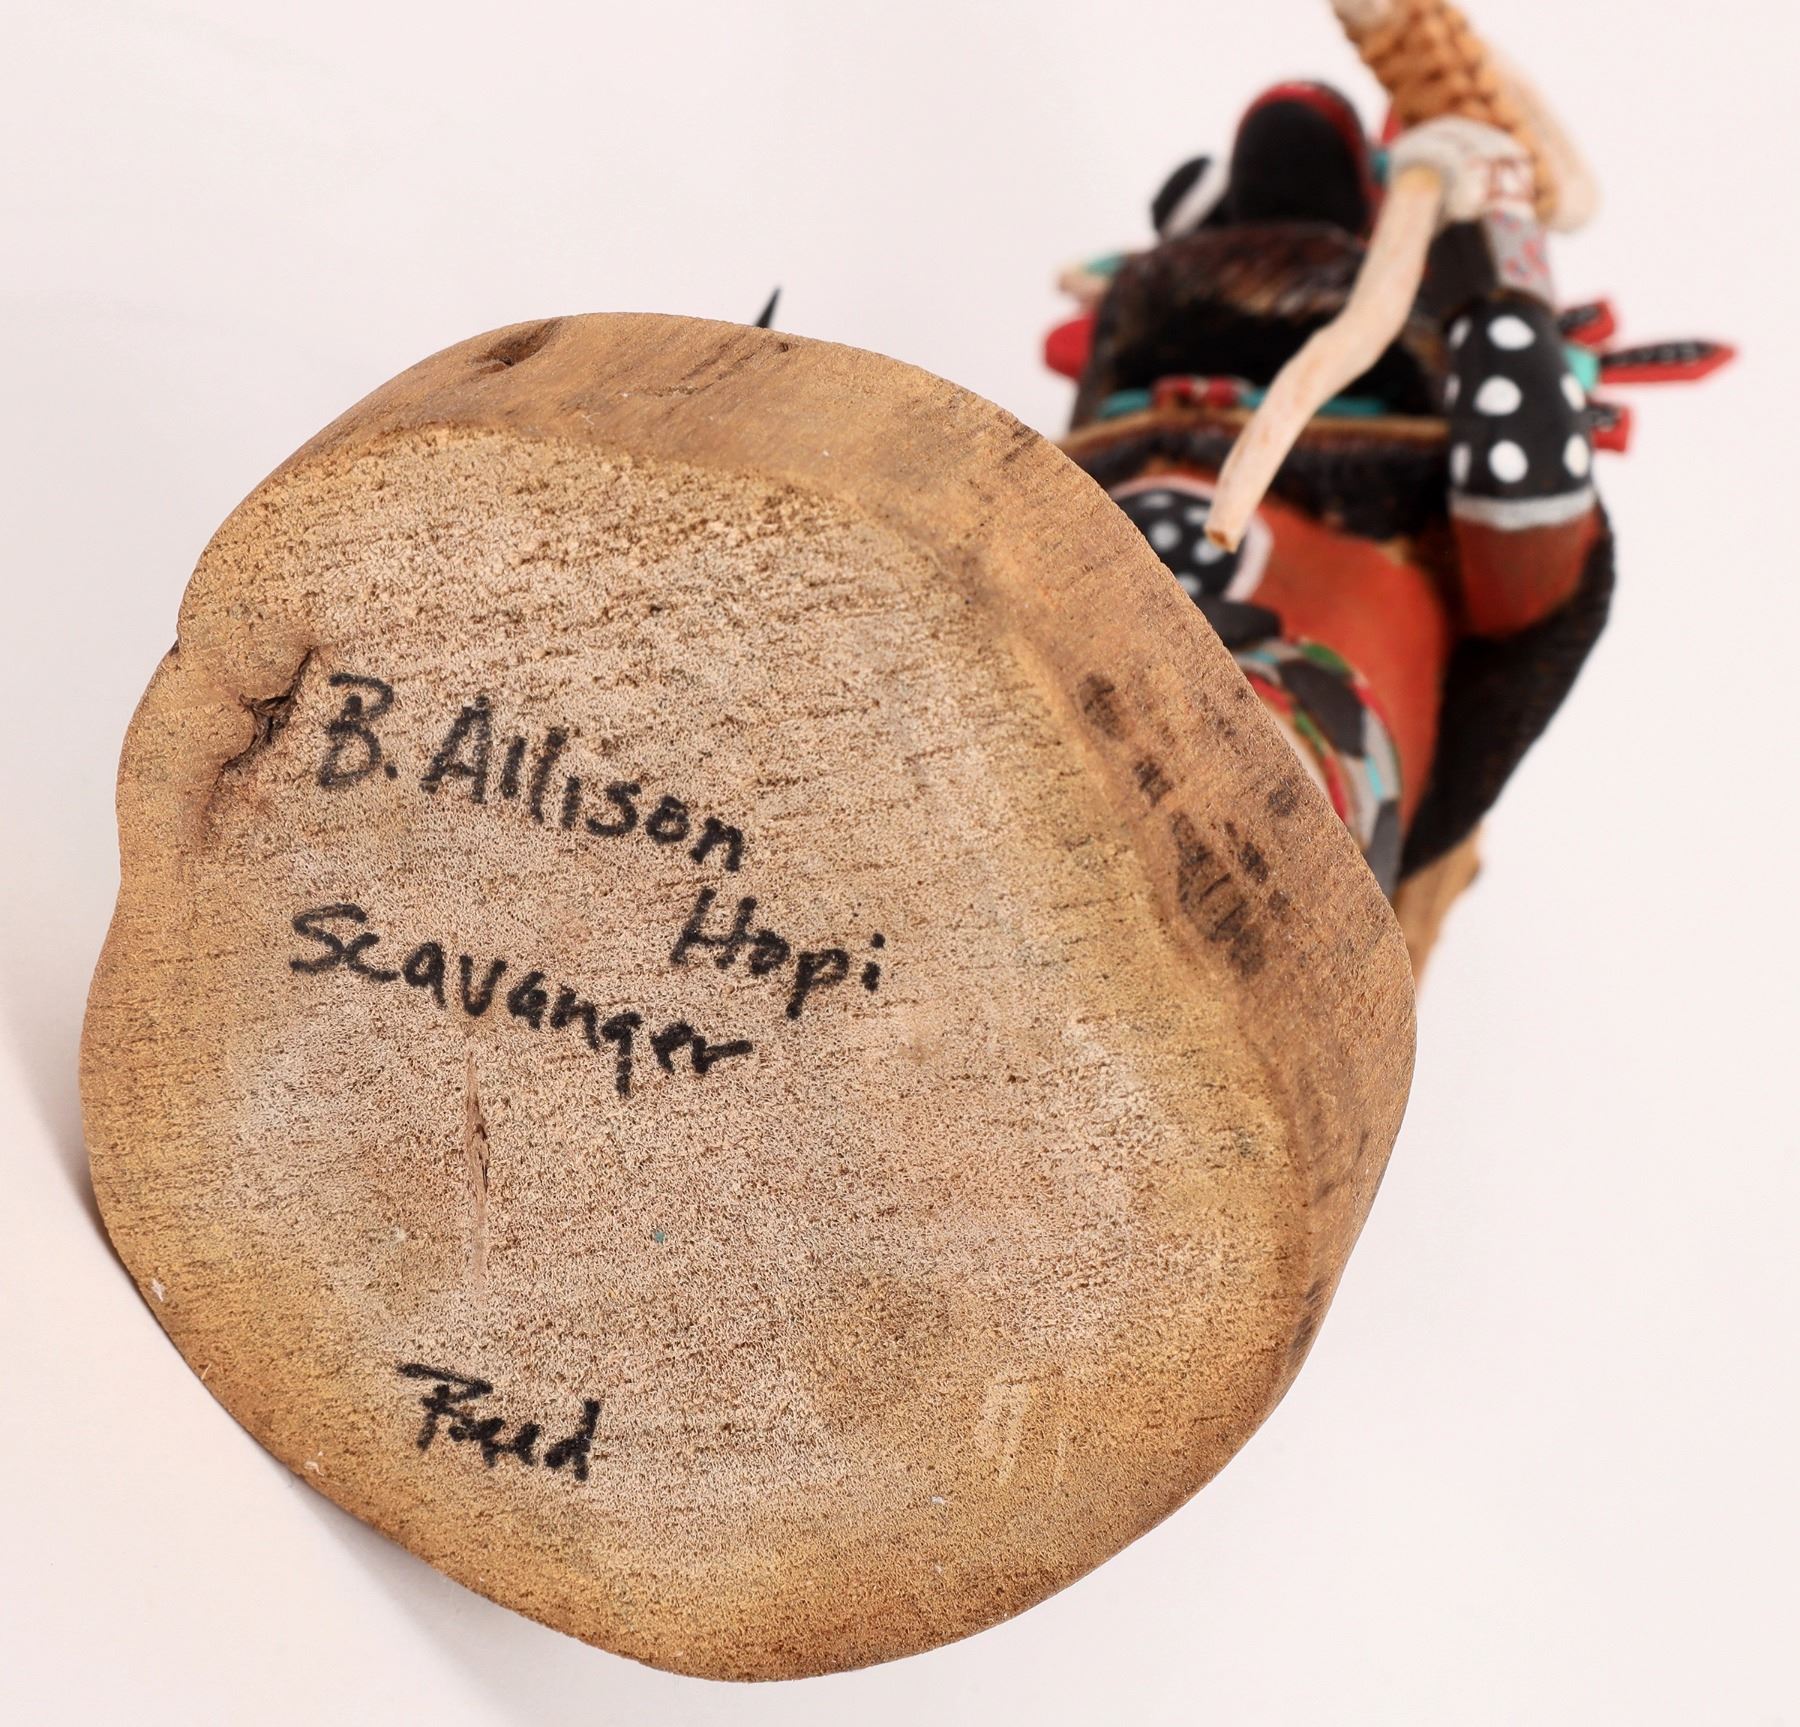 B. Allison
Hopi
Scavanger